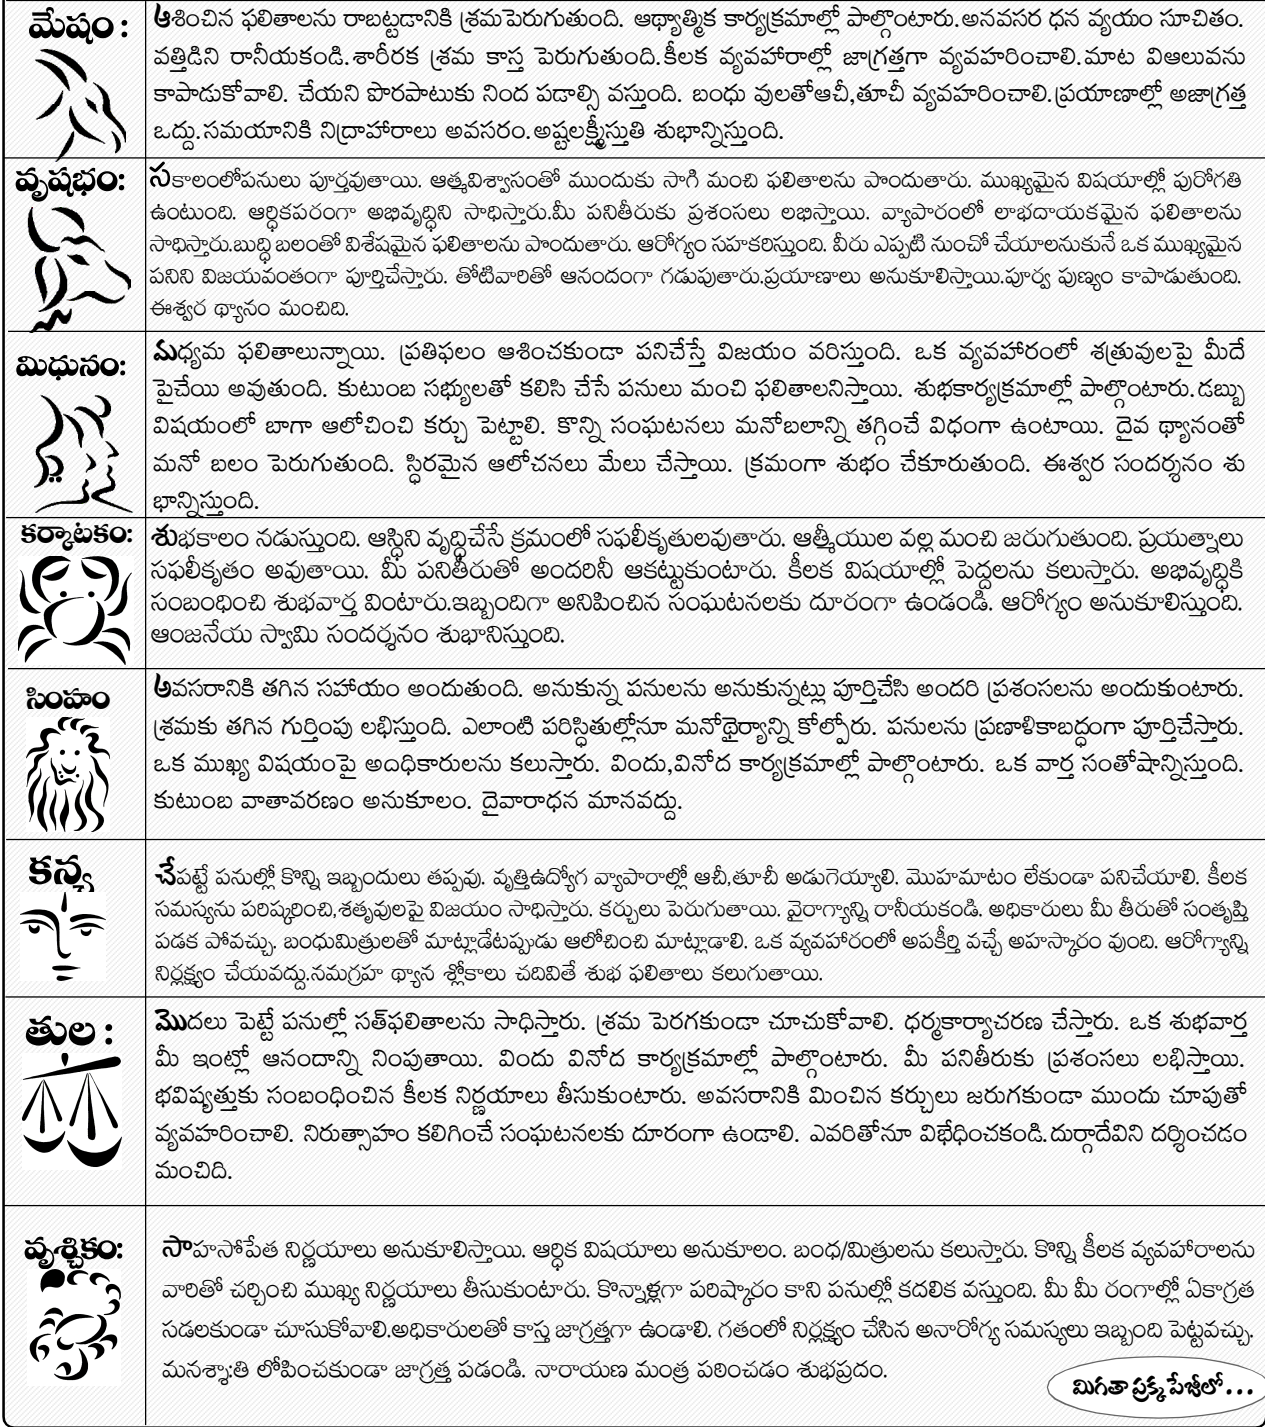 మేషం :
ఆశించిన ఫలితాలను రాబట్టడానికి శ్రమపెరుగుతుంది. ఆథ్యాత్మిక కార్యక్రమాల్లో పాల్గొంటారు.అనవసర ధన వ్యయం సూచితం.
వత్తిడిని రానీయకండి.శారీరక శ్రమ కాస్త పెరుగుతుంది.కీలక వ్యవహారాల్లో జాగ్రత్తగా వ్యవహరించాలి.మాట విఆలువను
కాపాడుకోవాలి. చేయని పొరపాటుకు నింద పడాల్సి వస్తుంది. బంధు వులతోఆచీ,తూచీ వ్యవహరించాలి.ప్రయాణాల్లో అజాగ్రత్త
ఒద్దు.సమయానికి నిద్రాహారాలు అవసరం.అష్టలక్ష్మీస్తుతి శుభాన్నిస్తుంది.
వృషభం:
సకాలంలోపనులు పూర్తవుతాయి. ఆత్మవిశ్వాసంతో ముందుకు సాగి మంచి ఫలితాలను పొందుతారు. ముఖ్యమైన విషయాల్లో పురోగతి
ఉంటుంది. ఆర్ధికపరంగా అభివృద్ధిని సాధిస్తారు.మీ పనితీరుకు ప్రశంసలు లభిస్తాయి. వ్యాపారంలో లాభదాయకమైన ఫలితాలను
సాధిస్తారు.బుద్ధి బలంతో విశేషమైన ఫలితాలను పొందుతారు. ఆరోగ్యం సహకరిస్తుంది. వీరు ఎప్పటి నుంచో చేయాలనుకునే ఒక ముఖ్యమైన
పనిని విజయవంతంగా పూర్తిచేస్తారు. తోటివారితో ఆనందంగా గడుపుతారు.ప్రయాణాలు అనుకూలిస్తాయి.పూర్వ పుణ్యం కాపాడుతుంది.
ఈశ్వర థ్యానం మంచిది.
మిధునం:
మధ్యమ ఫలితాలున్నాయి. ప్రతిఫలం ఆశించకుండా పనిచేస్తే విజయం వరిస్తుంది. ఒక వ్యవహారంలో శత్రువులపై మీదే
పైచేయి అవుతుంది. కుటుంబ సభ్యులతో కలిసి చేసే పనులు మంచి ఫలితాలనిస్తాయి. శుభకార్యక్రమాల్లో పాల్గొంటారు.డబ్బు
విషయంలో బాగా ఆలోచించి కర్చు పెట్టాలి. కొన్ని సంఘటనలు మనోబలాన్ని తగ్గించే విధంగా ఉంటాయి. దైవ థ్యానంతో
మనో బలం పెరుగుతుంది. స్ధిరమైన ఆలోచనలు మేలు చేస్తాయి. క్రమంగా శుభం చేకూరుతుంది. ఈశ్వర సందర్శనం శు
భాన్నిస్తుంది.
కర్కాటకం:
శుభకాలం నడుస్తుంది. ఆస్ధిని వృద్ధిచేసే క్రమంలో సఫలీకృతులవుతారు. ఆత్మీయుల వల్ల మంచి జరుగుతుంది. ప్రయత్నాలు
సఫలీకృతం అవుతాయి. మీ పనితీరుతో అందరినీ ఆకట్టుకుంటారు. కీలక విషయాల్లో పెద్దలను కలుస్తారు. అభివృద్ధికి
సంబంధించి శుభవార్త వింటారు.ఇబ్బందిగా అనిపించిన సంఘటనలకు దూరంగా ఉండండి. ఆరోగ్యం అనుకూలిస్తుంది.
ఆంజనేయ స్వామి సందర్శనం శుభానిస్తుంది.
సింహం
అవసరానికి తగిన సహాయం అందుతుంది. అనుకున్న పనులను అనుకున్నట్లు పూర్తిచేసి అందరి ప్రశంసలను అందుకుంటారు.
శ్రమకు తగిన గుర్తింపు లభిస్తుంది. ఎలాంటి పరిస్ధితుల్లోనూ మనోథైర్యాన్ని కోల్పోరు. పనులను ప్రణాళికాబద్ధంగా పూర్తిచేస్తారు.
ఒక ముఖ్య విషయంపై అదధికారులను కలుస్తారు. విందు,వినోద కార్యక్రమాల్లో పాల్గొంటారు. ఒక వార్త సంతోషాన్నిస్తుంది.
కుటుంబ వాతావరణం అనుకూలం. దైవారాధన మానవద్దు.
కన్య
చేపట్టే పనుల్లో కొన్ని ఇబ్బందులు తప్పవు. వృత్తిఉద్యోగ వ్యాపారాల్లో ఆచీ,తూచీ అడుగెయ్యాలి. మొహమాటం లేకుండా పనిచేయాలి. కీలక
సమస్యను పరిష్కరించి,శతృవులపై విజయం సాధిస్తారు. కర్చులు పెరుగుతాయి. వైరాగ్యాన్ని రానీయకండి. అధికారులు మీ తీరుతో సంతృప్తి
పడక పోవచ్చు. బంధుమిత్రులతో మాట్లాడేటప్పుడు ఆలోచించి మాట్లాడాలి. ఒక వ్యవహారంలో అపకీర్తి వచ్చే అహస్కారం వుంది. ఆరోగ్యాన్ని
నిర్లక్ష్యం చేయవద్దు.నమగ్రహ థ్యాన శ్లోకాలు చదివితే శుభ ఫలితాలు కలుగుతాయి.
తుల :
మొదలు పెట్టే పనుల్లో సత్‌ఫలితాలను సాధిస్తారు. శ్రమ పెరగకుండా చూచుకోవాలి. ధర్మకార్యాచరణ చేస్తారు. ఒక శుభవార్త
మీ ఇంట్లో ఆనందాన్ని నింపుతాయి. విందు వినోద కార్యక్రమాల్లో పాల్గొంటారు. మీ పనితీరుకు ప్రశంసలు లభిస్తాయి.
భవిష్యత్తుకు సంబంధించిన కీలక నిర్ణయాలు తీసుకుంటారు. అవసరానికి మించిన కర్చులు జరుగకుండా ముందు చూపుతో
వ్యవహరించాలి. నిరుత్సాహం కలిగించే సంఘటనలకు దూరంగా ఉండాలి. ఎవరితోనూ విభేధించకండి.దుర్గాదేవిని దర్శించడం
మంచిది.
వృశ్చికం:
సాహసోపేత నిర్ణయాలు అనుకూలిస్తాయి. ఆర్ధిక విషయాలు అనుకూలం. బంధ/మిత్రులను కలుస్తారు. కొన్ని కీలక వ్యవహారాలను
వారితో చర్చించి ముఖ్య నిర్ణయాలు తీసుకుంటారు. కొన్నాళ్లగా పరిష్కారం కాని పనుల్లో కదలిక వస్తుంది. మీ మీ రంగాల్లో ఏకాగ్రత
సడలకుండా చూసుకోవాలి.అధికారులతో కాస్త జాగ్రత్తగా ఉండాలి. గతంలో నిర్లక్ష్యం చేసిన అనారోగ్య సమస్యలు ఇబ్బంది పెట్టవచ్చు.
మనశ్శాఃతి లోపించకుండా జాగ్రత్త పడండి. నారాయణ మంత్ర పఠించడం శుభప్రదం.
మిగతా ప్రక్క పేజీలో...